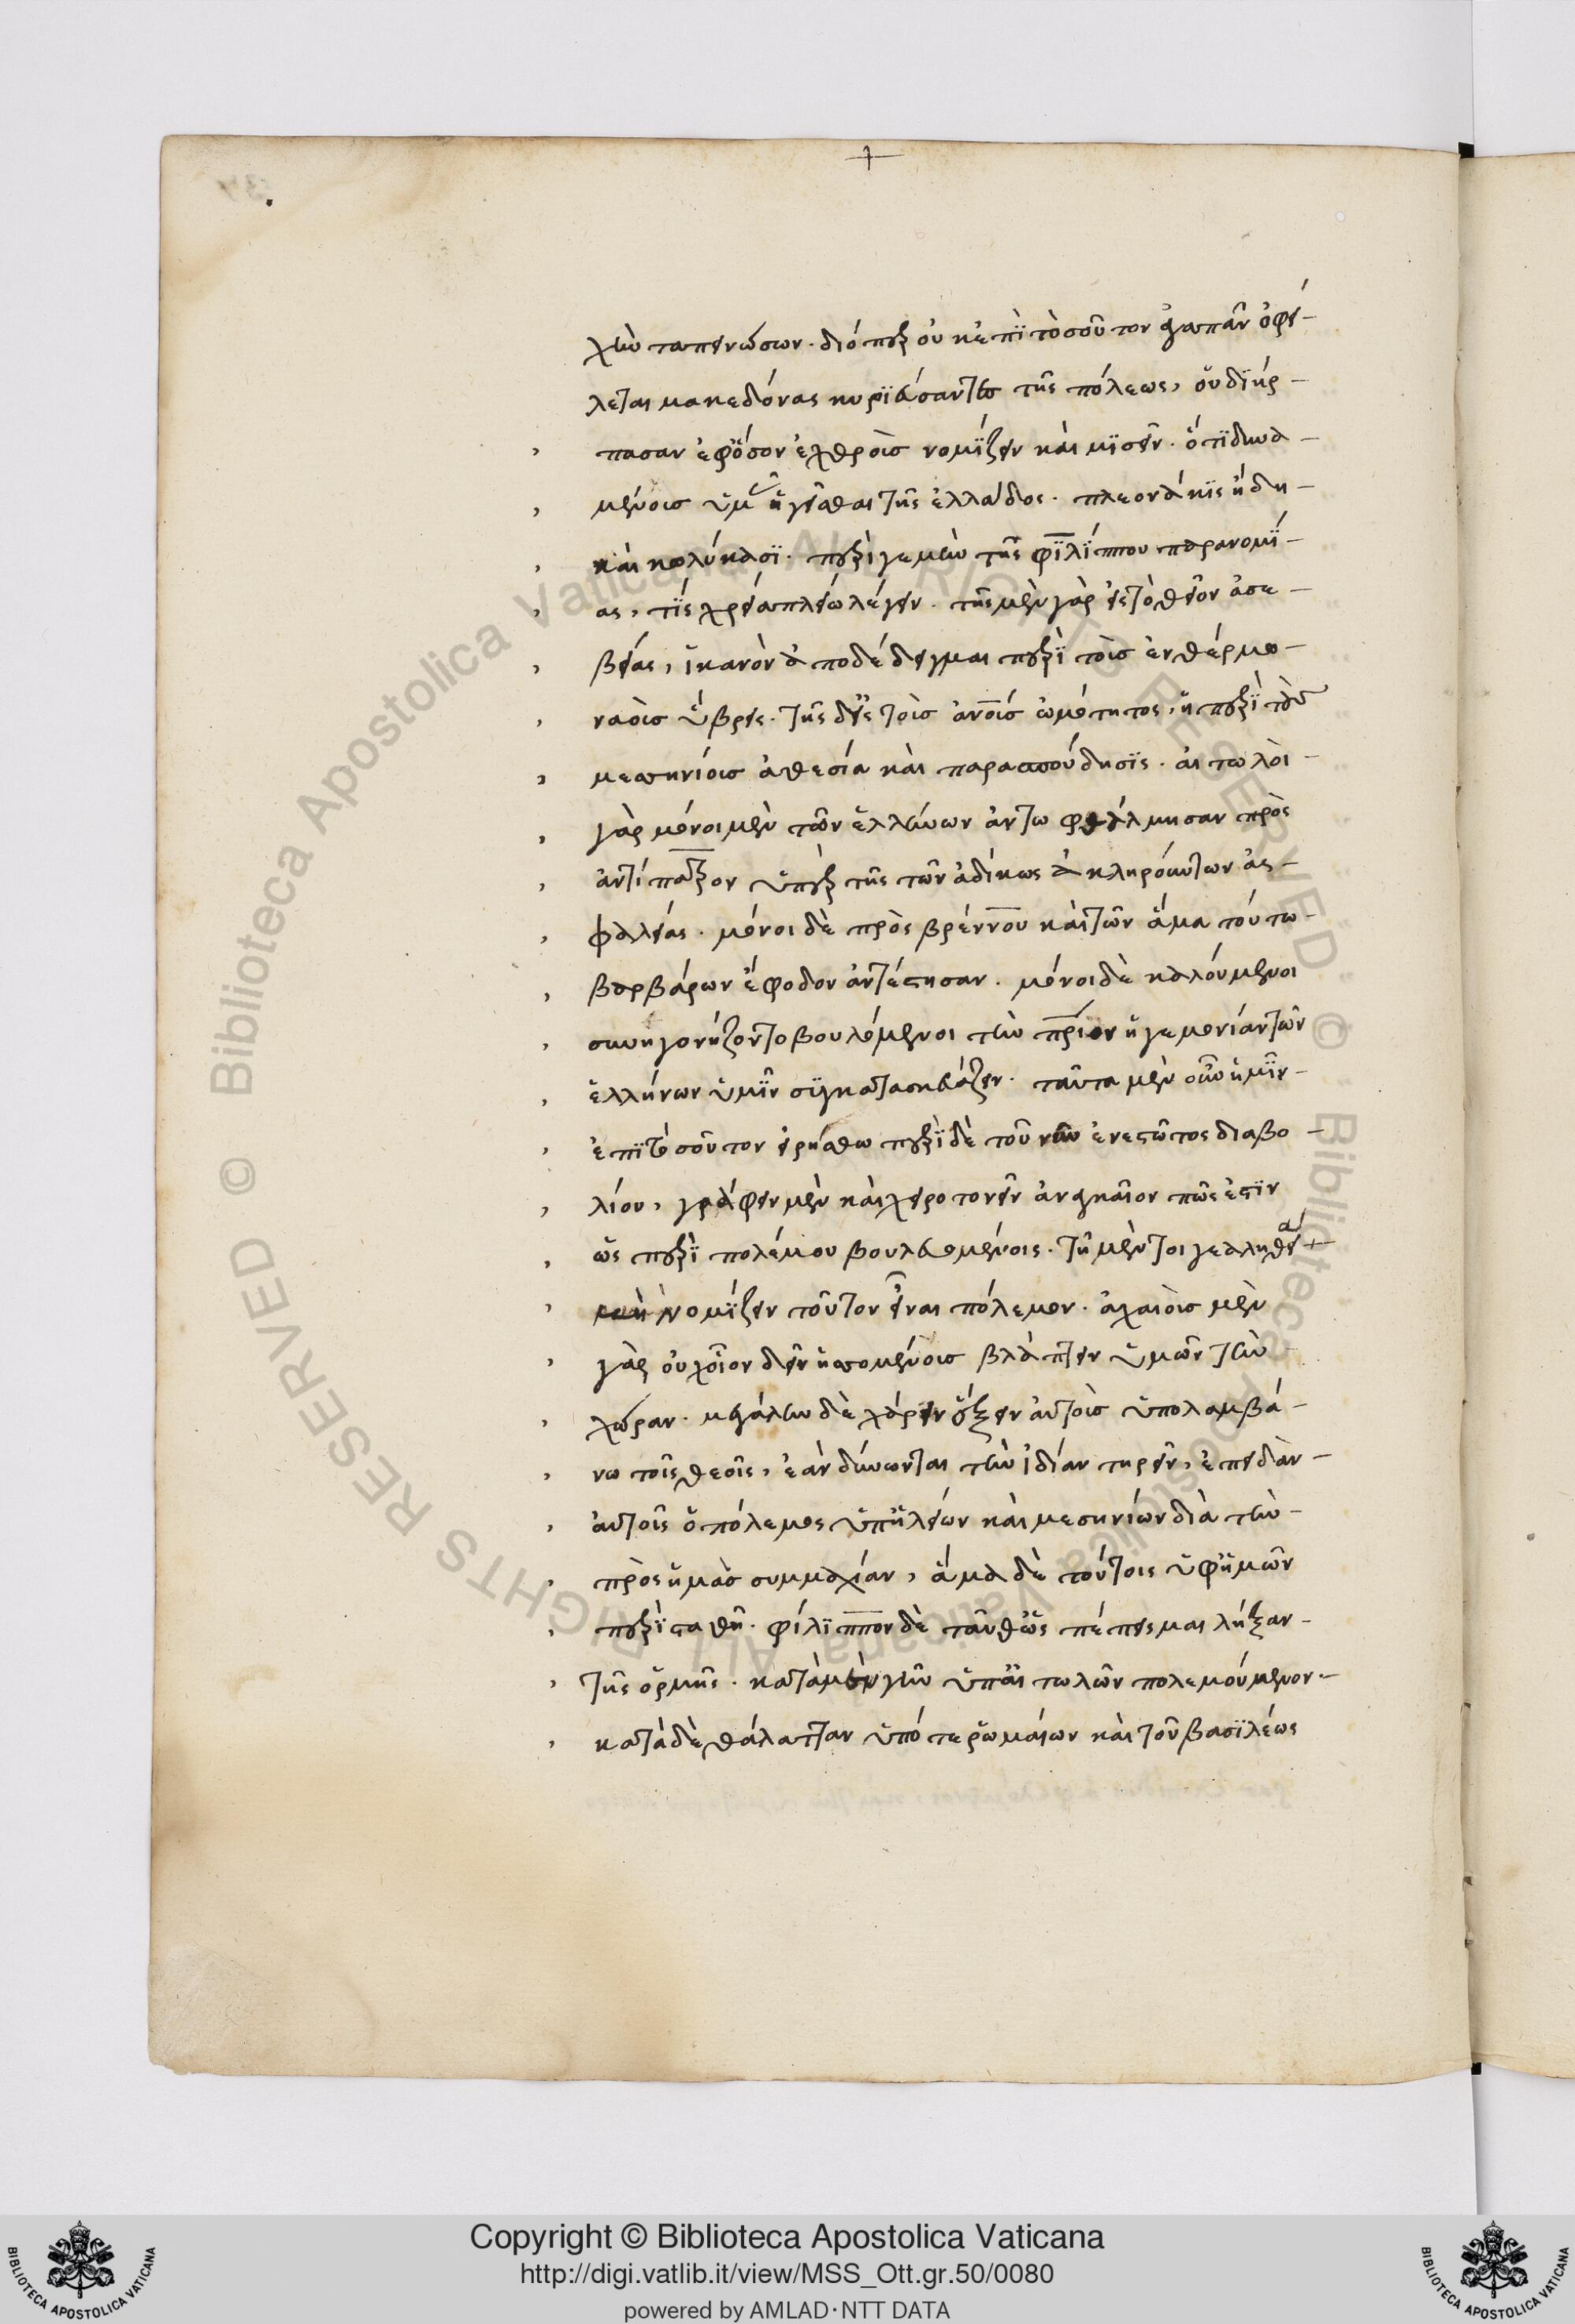 +
χὴν ταπεινώσων. διόπερ οὐκ ἐπὶ τοσοῦτον ἀγαπᾶν ὀφεί-
λεται μακεδόνας κυριεύσαντες τῆς πόλεως, οὐ διήρ-
πασαν ἐφ' ὅσον ἐχθροῖς νομίζειν καὶ μισεῖν. ὅτι δυνα-
μένοις ὑμᾶς ἡγεῖσθαι τῆς ἑλλάδος. πλεονάκις ἤδη
καὶ κωλύκασι. περί γε μὴν τῆς φιλίππου παρανομί-
ας, τίς χρεία πλείω λέγειν. τῆς μὲν γὰρ εἰς τὸ θεῖον ἀσε-
βείας, ἱκανὸν ἀποδέδειγμαι περὶ τοῖς ἐν θέρμω
ναοῖς ὕβρεις. τῆς δ' εἰς τοῖς ἀνοις ὠμότητος, ἡ περὶ τοὺς
μεσηνίοις ἀθεσία καὶ παρασπούδησις. αἰτωλοὶ
γὰρ μόνοι μὲν τῶν ἑλλήνων ἀντωφθάλμησαν πρὸς
ἀντίπατρον ὑπὲρ τῆς τῶν ἀδίκως ἀκληρούντων ἀσ-
φαλείας. μόνοι δὲ πρὸς βρέννου καὶ τῶν ἅμα τούτω
βαρβάρων ἔφοδον ἀντέστησαν. μόνοι δὲ καλούμενοι
συνηγονήζοντο βουλόμενοι τὴν πρίον ἡγεμονίαν τῶν
ἑλλήνων ὑμῖν συγκατασκευάζειν. ταῦτα μὲν οὖν ἡμῖν
ἐπὶ τοσοῦτον εἰρήσθω περὶ δὲ τοῦ νῦν ἐνεστῶτος διαβο-
λίου, γράφειν μὲν καὶ χειροτονεῖν ἀναγκαῖον πῶς ἐστὶν
ὡς περὶ πολέμου βουλευομένοις. τῇ μέντοι γε ἀληθεία
νομίζειν τοῦτον εἶναι πόλεμον. ἀχαιοῖς μὲν
γὰρ οὐχ οἷον δεῖν ἡσσομένοις βλάπτειν ὑμῶν τὴν
χώραν. μεγάλην δὲ χάριν ἕξειν αὐτοῖς ὑπολαμβά-
νω τοῖς θεοῖς, ἐὰν δύνωνται τὴν ἰδίαν τηρεῖν, ἐπειδὰν
αὐτοῖς ὁ πόλεμος ὑπ' ἠλείων καὶ μεσηνίων διὰ τὴν
πρὸς ἡμᾶς συμμαχίαν, ἅμα δὲ τούτοις ὑφ' ἡμῶν
περισταθῇ. φίλιππον δὲ ταῦθ' ὡς πέπεισμαι λήξαν-
τῆς ὁρμῆς. κατὰ μὲν γῆν ὑπ' αἰτωλῶν πολεμούμενον.
κατὰ δὲ θάλατταν ὑπό τε ῥωμαίων καὶ τοῦ βασιλέως
Copyright © Biblioteca Apostolica Vaticana
http://digi.vatlib.it/view/MSS_Ott.gr.50/0080
powered by AMLAD·NTT DATA